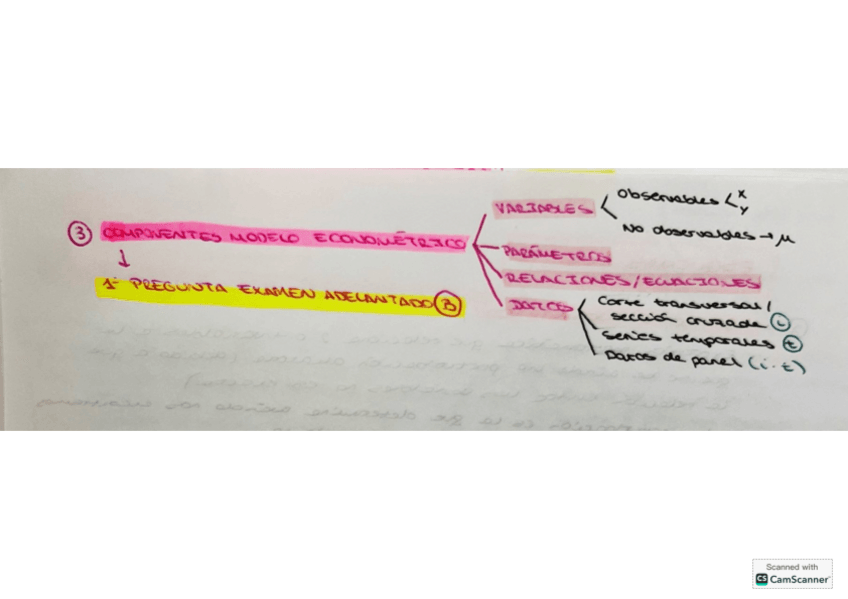 ③ COMPONENTES MODELO ECONOMÉTRICO
↓
1ª PREGUNTA EXAMEN ADELANTADO ③
VARIABLES
Observables < x
y
No observables → μ
PARÁMETROS
RELACIONES/ECUACIONES
DATOS
Corte transversal /
sección cruzada (i)
Series temporales (t)
Datos de panel (i-t)
Scanned with
CS CamScanner